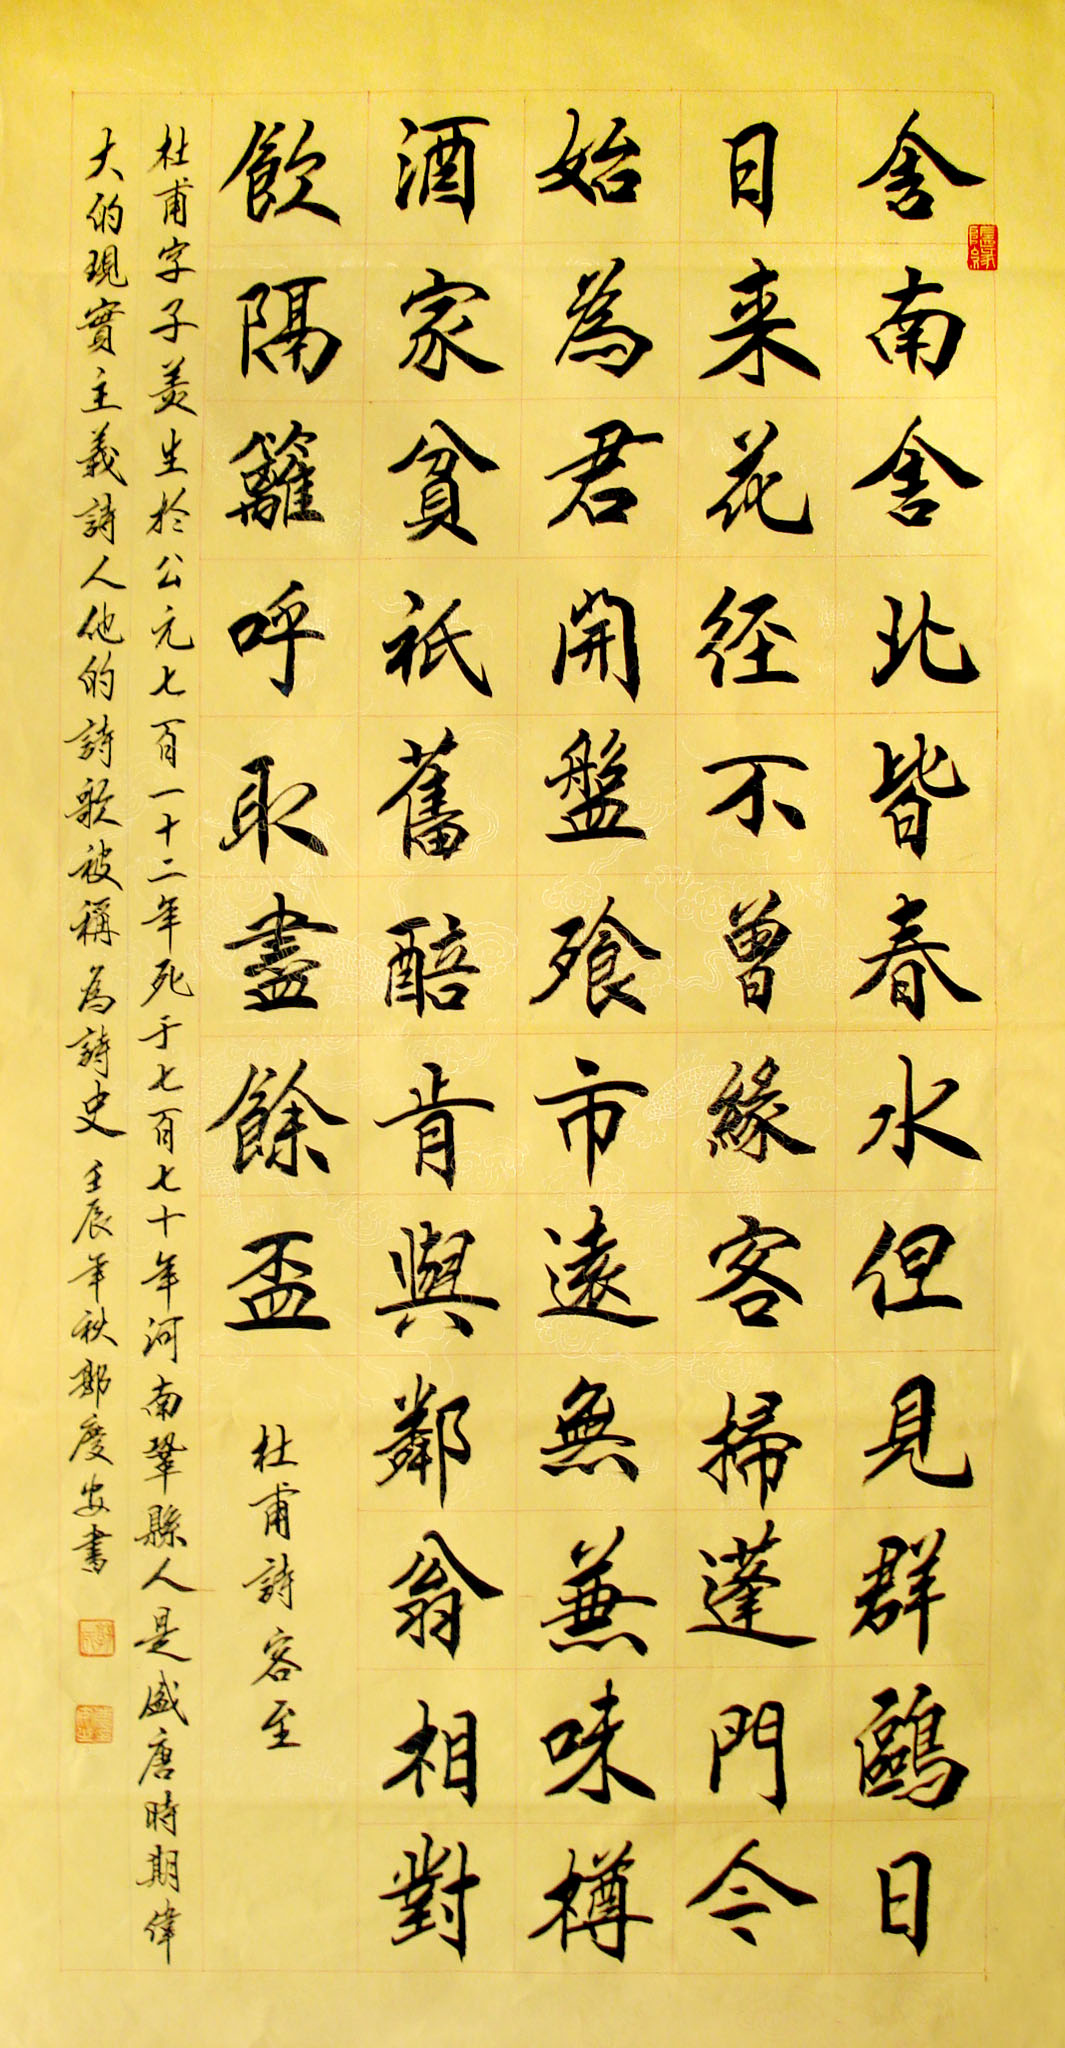 舍南舍北皆春水但見群鷗日
日来花径不曾緣客掃蓬門今
始為君開盤飱市遠無兼味樽
酒家貧祇舊醅肯與鄰翁相對
飲隔籬呼取盡餘盃
杜甫詩客至
杜甫字子美生於公元七百一十二年死于七百七十年河南鞏縣人是盛唐時期偉
大的現實主義詩人他的詩歌被稱為詩史壬辰年秋鄭慶安書